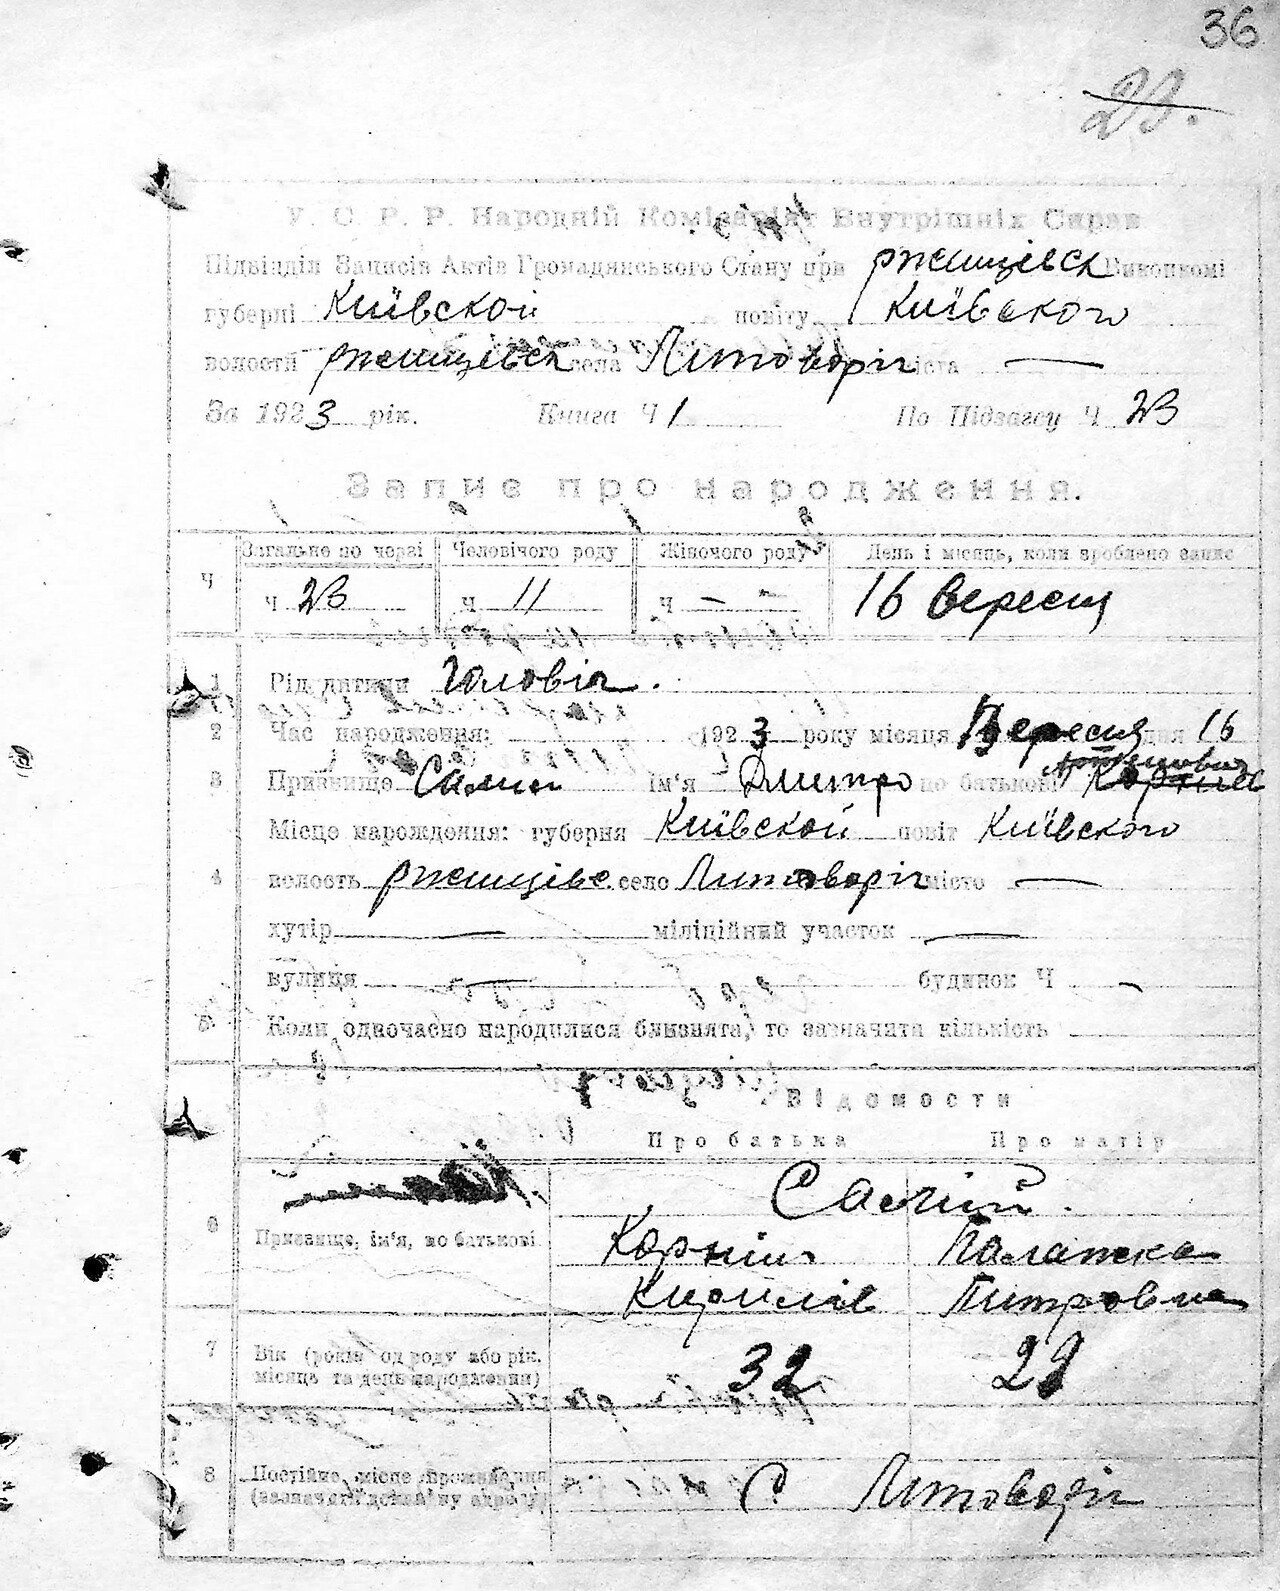 36
23.
У. С. Р. Р. Народній Комісаріят Внутрішніх Справ
Підвідділ Записів Актів Громадянського Стану при ржищівск Виконкомі
губерні Київскої повіту Київского
волости ржищівск села Литовріг міста —
За 1923 рік. Книга Ч 1 По Підзагсу Ч 23
Запис про народження.
Ч Загальне по черзі Человічого роду Жіночого роду День і місяць, коли зроблено запис
ч 23 ч 11 ч — — 16 вересня
1 Рід дитини Чоловіч.
2 Час народження: 1923 року місяця Вересня дня 16
3 Призвище Самій ім'я Дмитро по батькові
Місце народження: губерня Київскої повіт Київского
4 волость ржищівс село Литовріг місто —
хутір — міліційний участок —
вулиця — будинок Ч —
5 Коли одночасно народилися близнята, то зазначити кількість
Відомости
Про батька Про матір
Самій.
6 Призвище, ім'я, по батькові. Корній Палажка
Кирилів Питровна
7 Вік (років од роду або рік, 32 29
місяць та день народження)
8 Постійне місце проживання С Литовріг